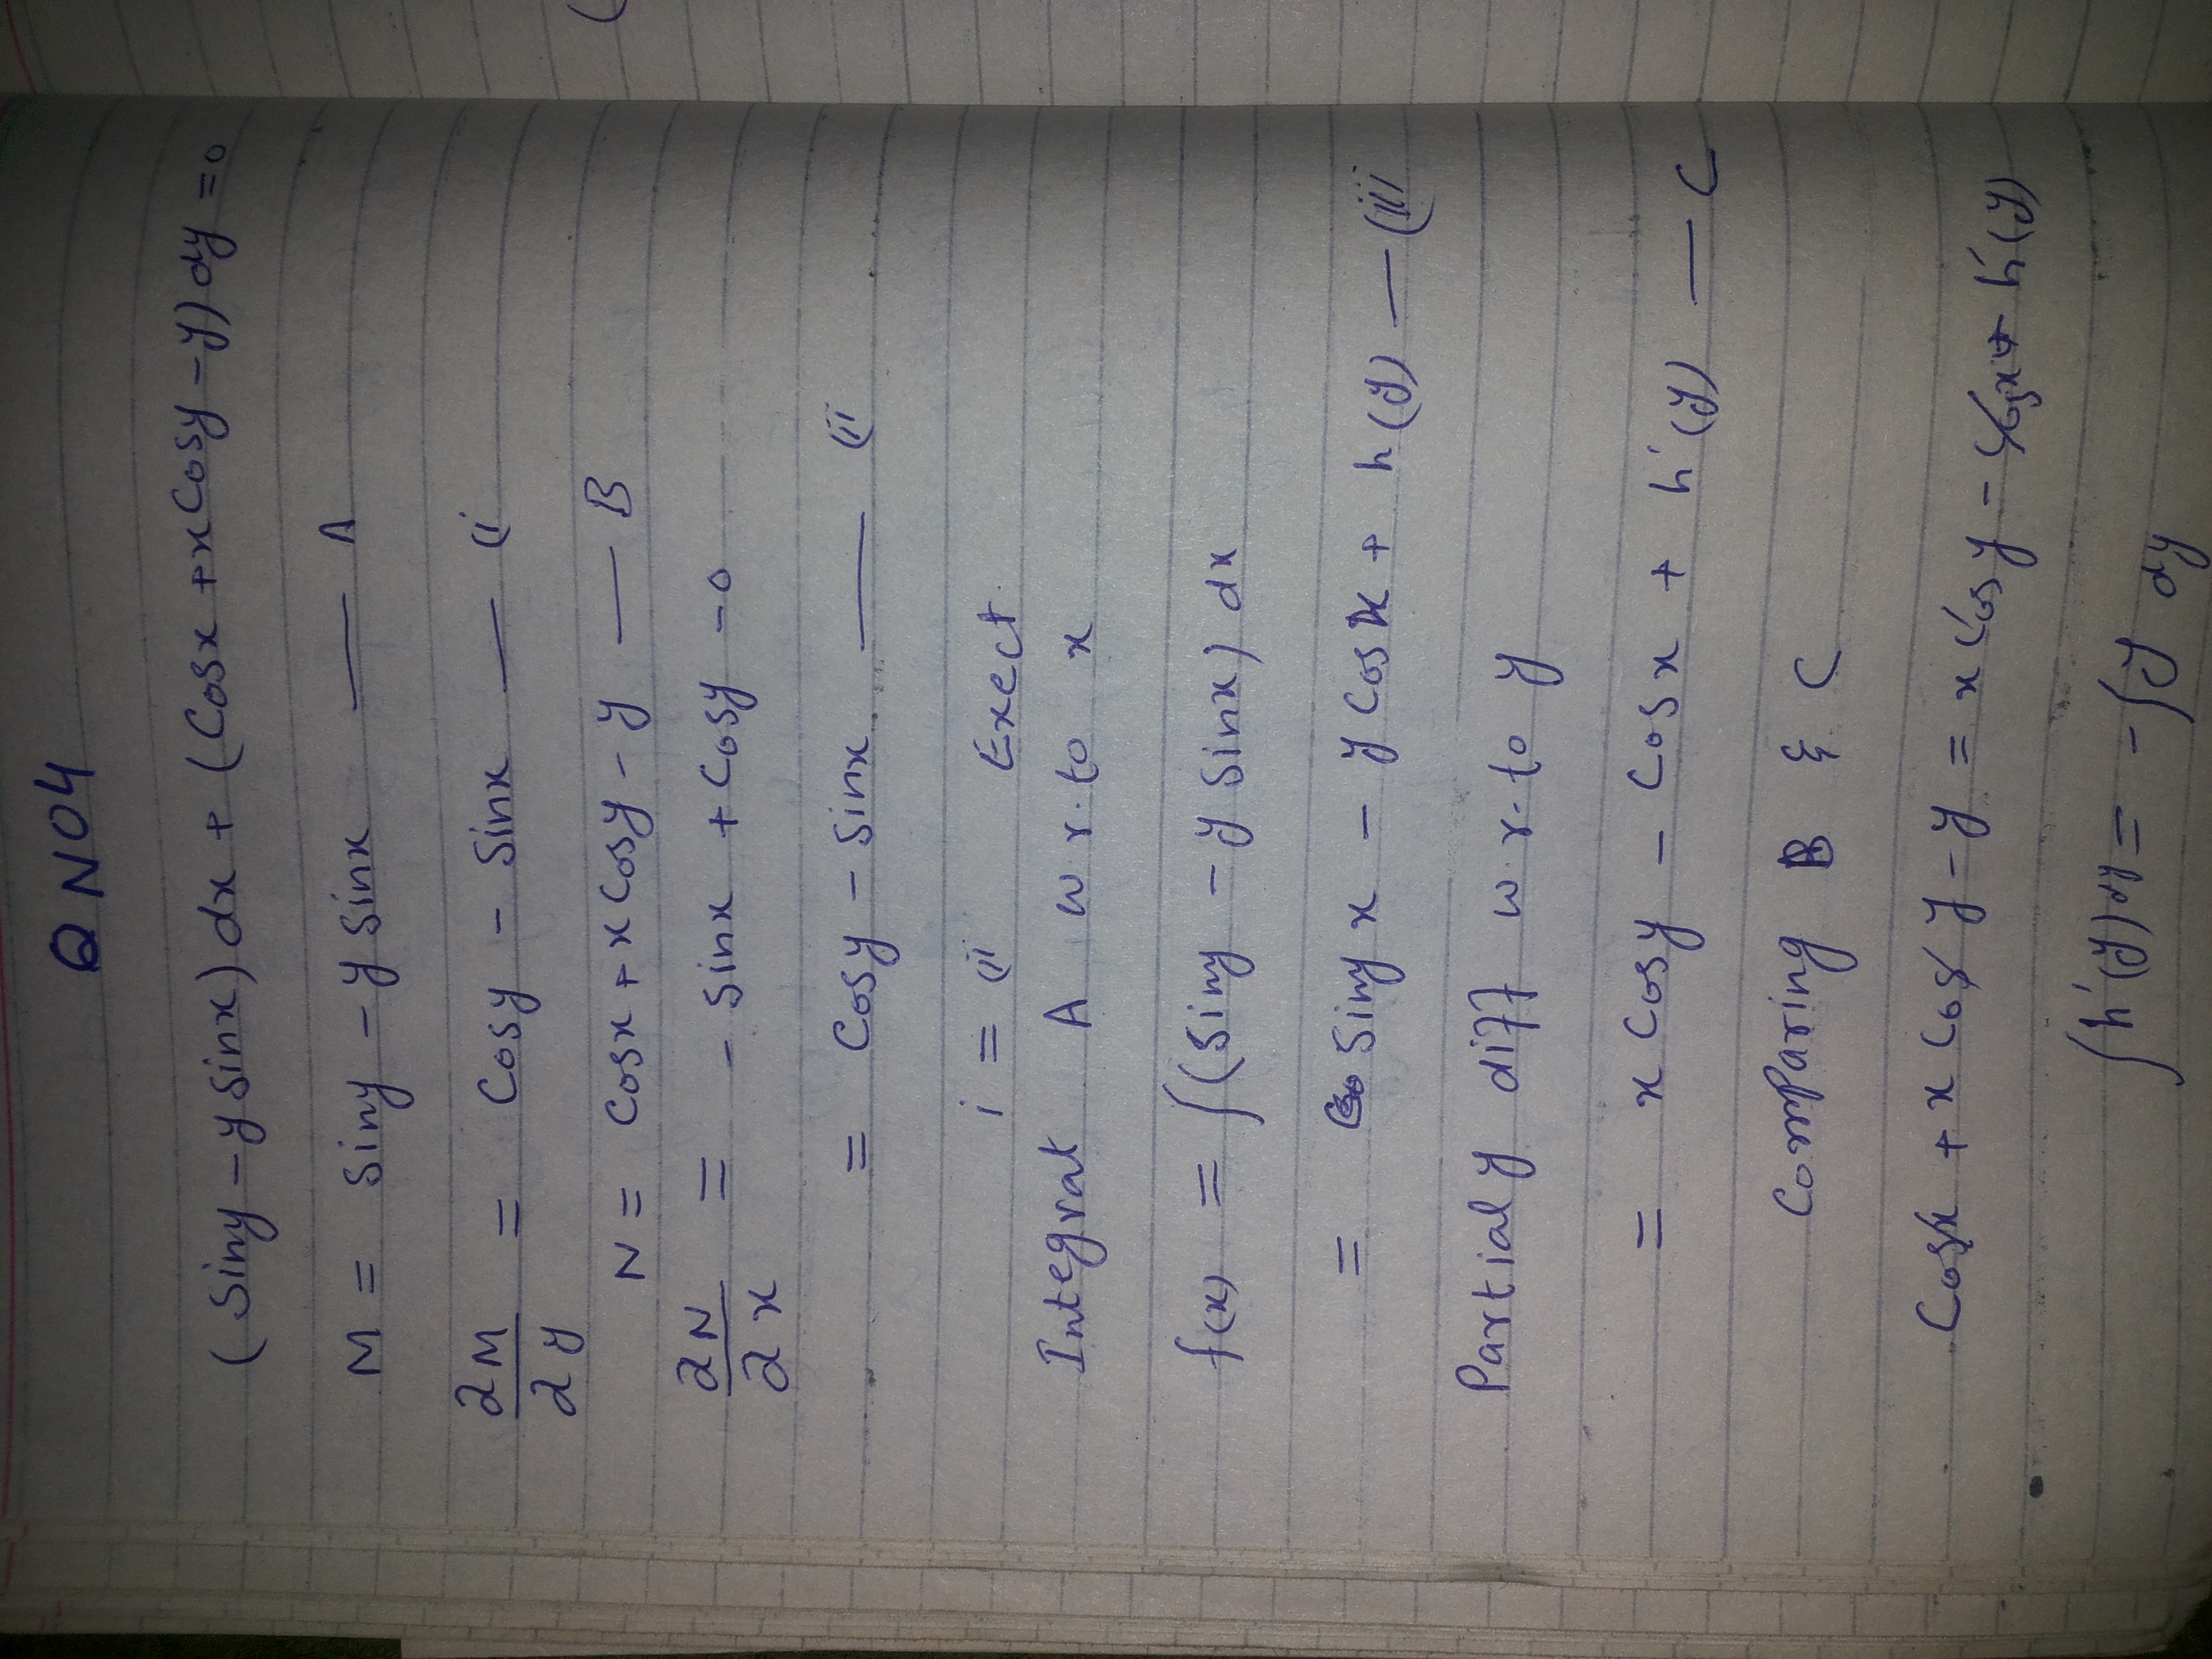 Q NO4
(Siny - y sinx) dx + (Cosx + x Cosy - y) dy = 0
M = Siny - y sinx — A
∂M/∂y = Cosy - Sinx — (i
N = Cosx + x Cosy - y — B
∂N/∂x = - Sinx + Cosy - 0
= Cosy - Sinx — (ii
i = (ii Exect
Integrat A w r. to x
f(x) = ∫(Siny - y Sinx) dx
= Siny x - y Cosx + h(y) — (iii
Partialy diff w.r. to y
= x Cosy - Cosx + h'(y) — C
Comparing B & C
Cosx + x Cos y - y = x Cosy - Cosx + h'(y)
∫h'(y) dy = -∫y dy